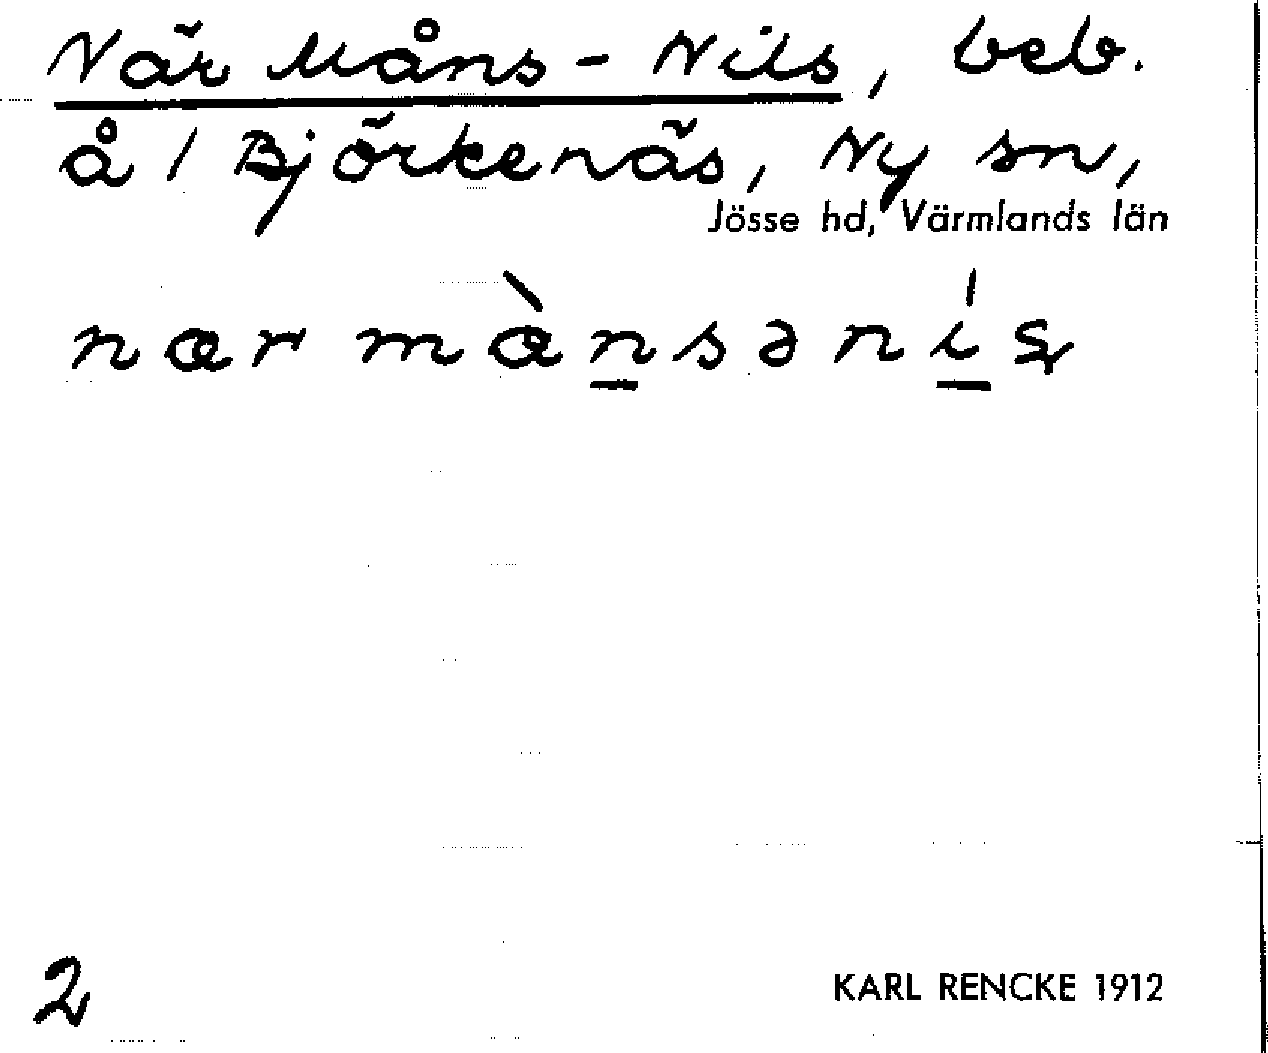 När Måns-Nils, beb.
å 1 Björkenäs, Ny sn,
Jösse hd, Värmlands län
nær mànsəníʂ
2
KARL RENCKE 1912